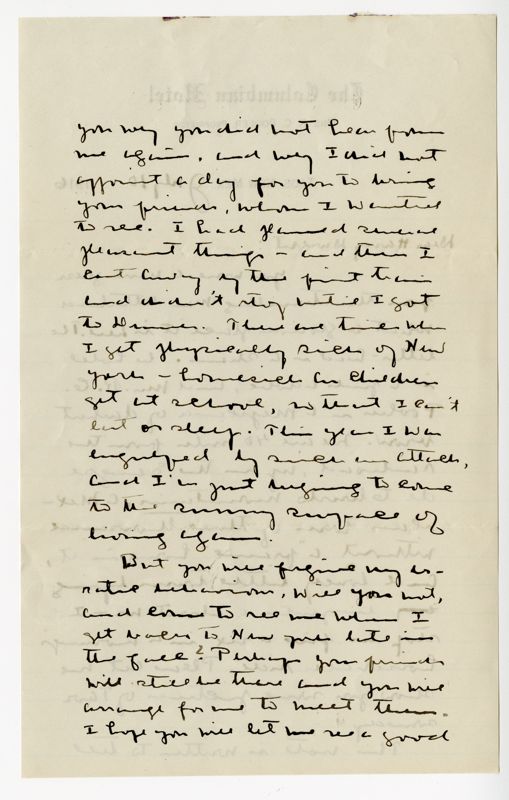 you why you did not hear from
me again, and why I did not
appoint a day for you to bring
your friends, whom I wanted
to see. I had planned several
pleasant things – and then I
cut away by the first train
and didn't stop until I got
to Denver. There are times when
I get physically sick of New
York – homesick as children
get at school, so that I can't
eat or sleep. This year I was
engulfed by such an attack,
and I'm just beginning to come
to the sunny surface of
living again.
But you will forgive my er-
ratic behaviour, will you not,
and come to see me when I
get back to New York late in
the fall? Perhaps your friends
will still be there and you will
arrange for me to meet them.
I hope you will let me see a good